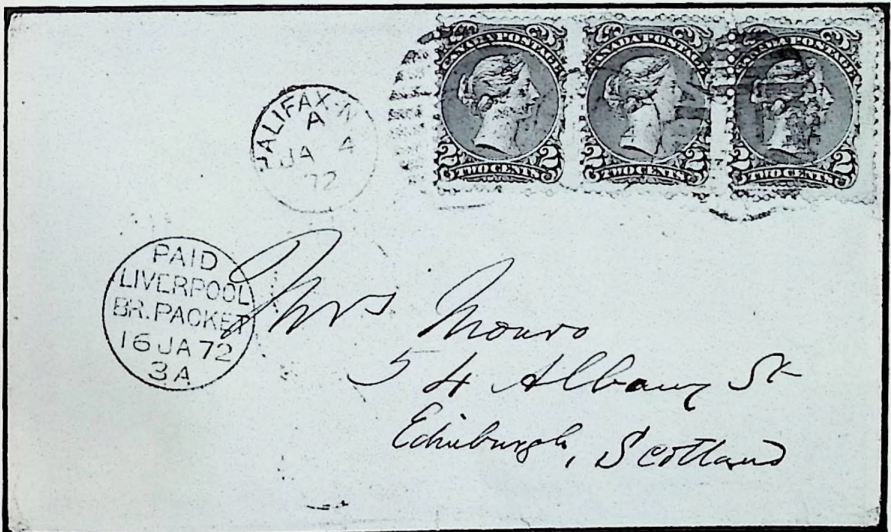 CANADA POSTAGE
2 TWO CENTS 2
CANADA POSTAGE
2 TWO CENTS 2
CANADA POSTAGE
2 TWO CENTS 2
HALIFAX·N
A
JA 4
72
PAID
LIVERPOOL
BR. PACKET
16 JA 72
3A
Mrs Monro
54 Albany St
Edinburgh, Scotland